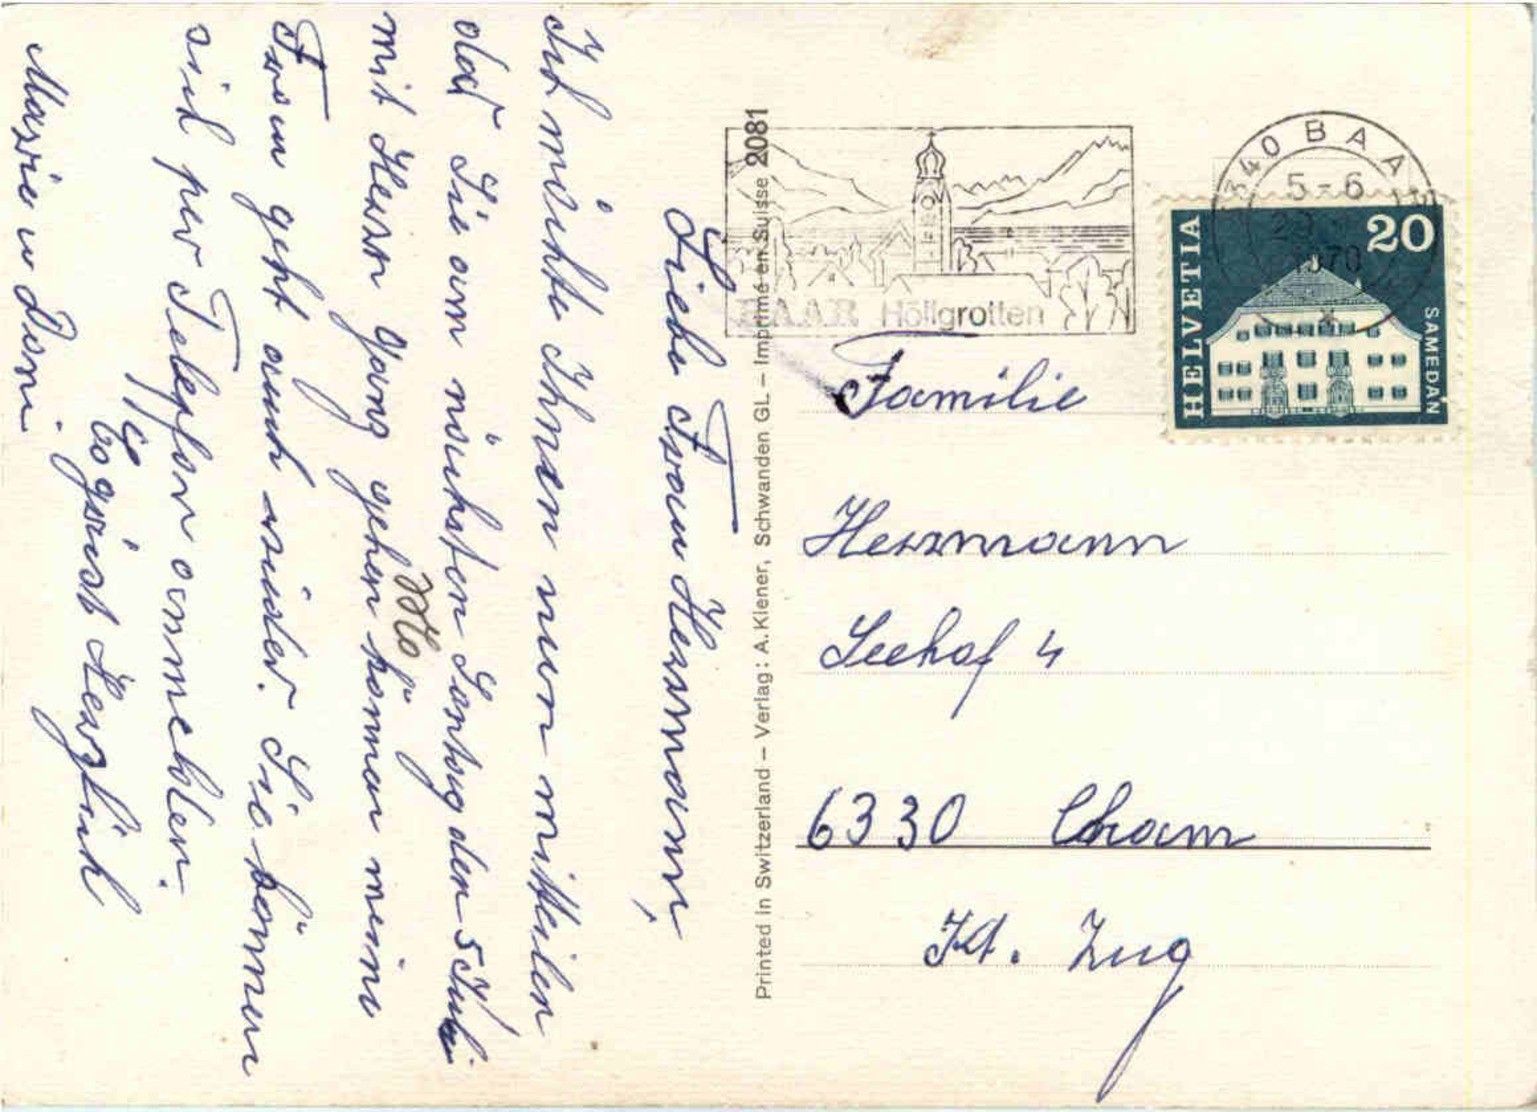 Liebe Frau Herrmann,
Ich möchte Ihnen nun mitteilen
das Sie am nächsten Samtag den 5 Juli
mit Herrn Gang gehen können meine
Frau geht auch wieder. Sie können
sich per Telefon anmelden.
Es grüsst Herzlich
Marie u Toni.
Printed in Switzerland – Verlag: A. Kiener, Schwanden GL – Imprimé en Suisse 2081
BAAR Höllgrotten
6340 BAAR
5-6
1970
HELVETIA
20
SAMEDAN
Familie
Herrmann
Seehof 4
6330 Cham
Kt. Zug